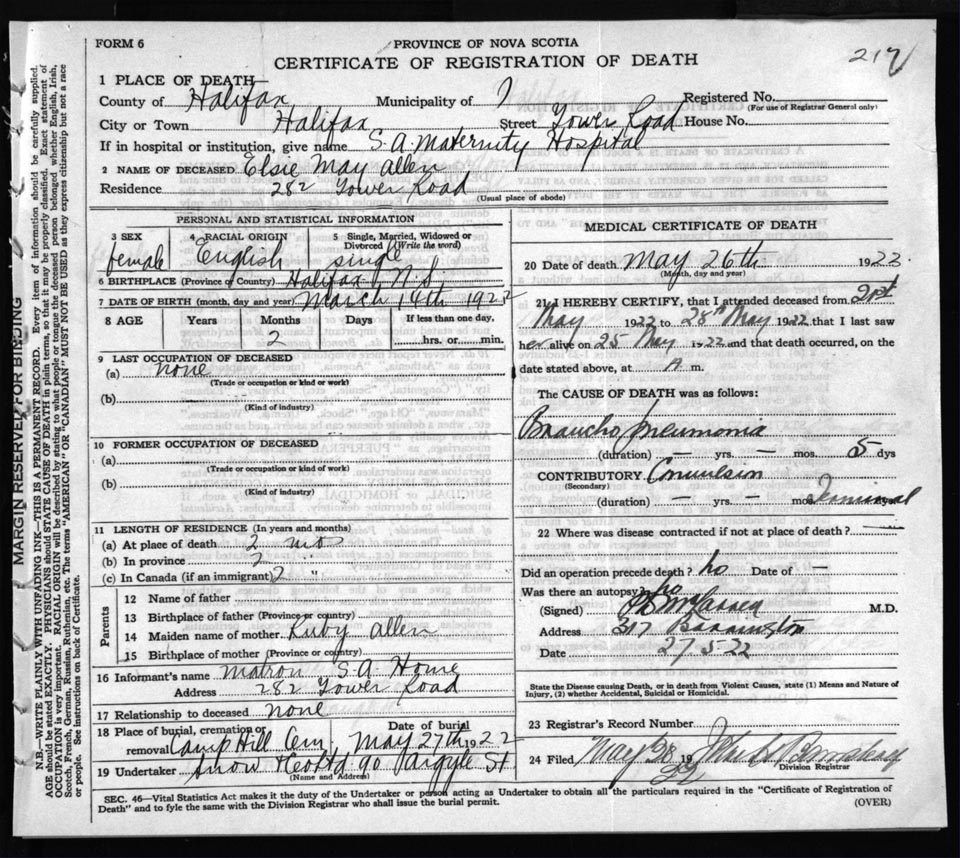 FORM 6
PROVINCE OF NOVA SCOTIA
CERTIFICATE OF REGISTRATION OF DEATH
217
1 PLACE OF DEATH—
County of Halifax Municipality of Registered No.
(For use of Registrar General only)
City or Town Halifax Street Tower Road House No.
If in hospital or institution, give name S.A. Maternity Hospital
2 NAME OF DECEASED Elsie May Allen
Residence 282 Tower Road
(Usual place of abode)
PERSONAL AND STATISTICAL INFORMATION
3 SEX 4 RACIAL ORIGIN 5 Single, Married, Widowed or
Divorced (Write the word)
female English single
6 BIRTHPLACE (Province or Country) Halifax N.S.
7 DATE OF BIRTH (month, day and year) March 14th 1922
8 AGE Years Months Days If less than one day,
2 hrs. or min.
9 LAST OCCUPATION OF DECEASED
(a) none
(Trade or occupation or kind or work)
(b)
(Kind of industry)
10 FORMER OCCUPATION OF DECEASED
(a)
(Trade or occupation or kind or work)
(b)
(Kind of industry)
11 LENGTH OF RESIDENCE (In years and months)
(a) At place of death 2 mos
(b) In province 2 "
(c) In Canada (if an immigrant) 2 "
Parents
12 Name of father
13 Birthplace of father (Province or country)
14 Maiden name of mother Ruby Allen
15 Birthplace of mother (Province or country)
16 Informant's name Matron S.A. Home
Address 282 Tower Road
17 Relationship to deceased none
18 Place of burial, cremation or removal Camp Hill Cem Date of burial May 27th 1922
19 Undertaker Snow & Co Ltd 90 Argyle St
(Name and Address)
MEDICAL CERTIFICATE OF DEATH
20 Date of death May 26th 1922.
(Month, day and year)
21 I HEREBY CERTIFY, that I attended deceased from 21st
May 1922 to 28th May 1922 that I last saw
her alive on 25 May 1922 and that death occurred, on the
date stated above, at A m.
The CAUSE OF DEATH was as follows:
Braucho pneumonia
(duration) — yrs. — mos. 5 dys
CONTRIBUTORY Convulsion
(Secondary)
(duration) — yrs — mos Terminal
22 Where was disease contracted if not at place of death?
Did an operation precede death? no Date of —
Was there an autopsy? no
(Signed) M.D.
Address 317 Barrington
Date 27 5-22
State the Disease causing Death, or in death from Violent Causes, state (1) Means and Nature of
Injury, (2) whether Accidental, Suicidal or Homicidal.
23 Registrar's Record Number
24 Filed May 28 1922
Division Registrar
SEC. 46—Vital Statistics Act makes it the duty of the Undertaker or person acting as Undertaker to obtain all the particulars required in the "Certificate of Registration of
Death" and to fyle the same with the Division Registrar who shall issue the burial permit.
(OVER)
MARGIN RESERVED FOR BINDING
N.B.—WRITE PLAINLY WITH UNFADING INK—THIS IS A PERMANENT RECORD. Every item of information should be carefully supplied.
AGE should be stated EXACTLY. PHYSICIANS should STATE CAUSE OF DEATH in plain terms, so that it may be properly classified. Exact statement of
OCCUPATION is very important. RACIAL ORIGIN will be described by stating to what people or tongue the deceased person belonged whether English, Irish,
Scotch, French, German, Russian, Ruthenian, etc. The terms "AMERICAN" OR "CANADIAN" MUST NOT BE USED as they express citizenship but not a race
or people. See instructions on back of Certificate.